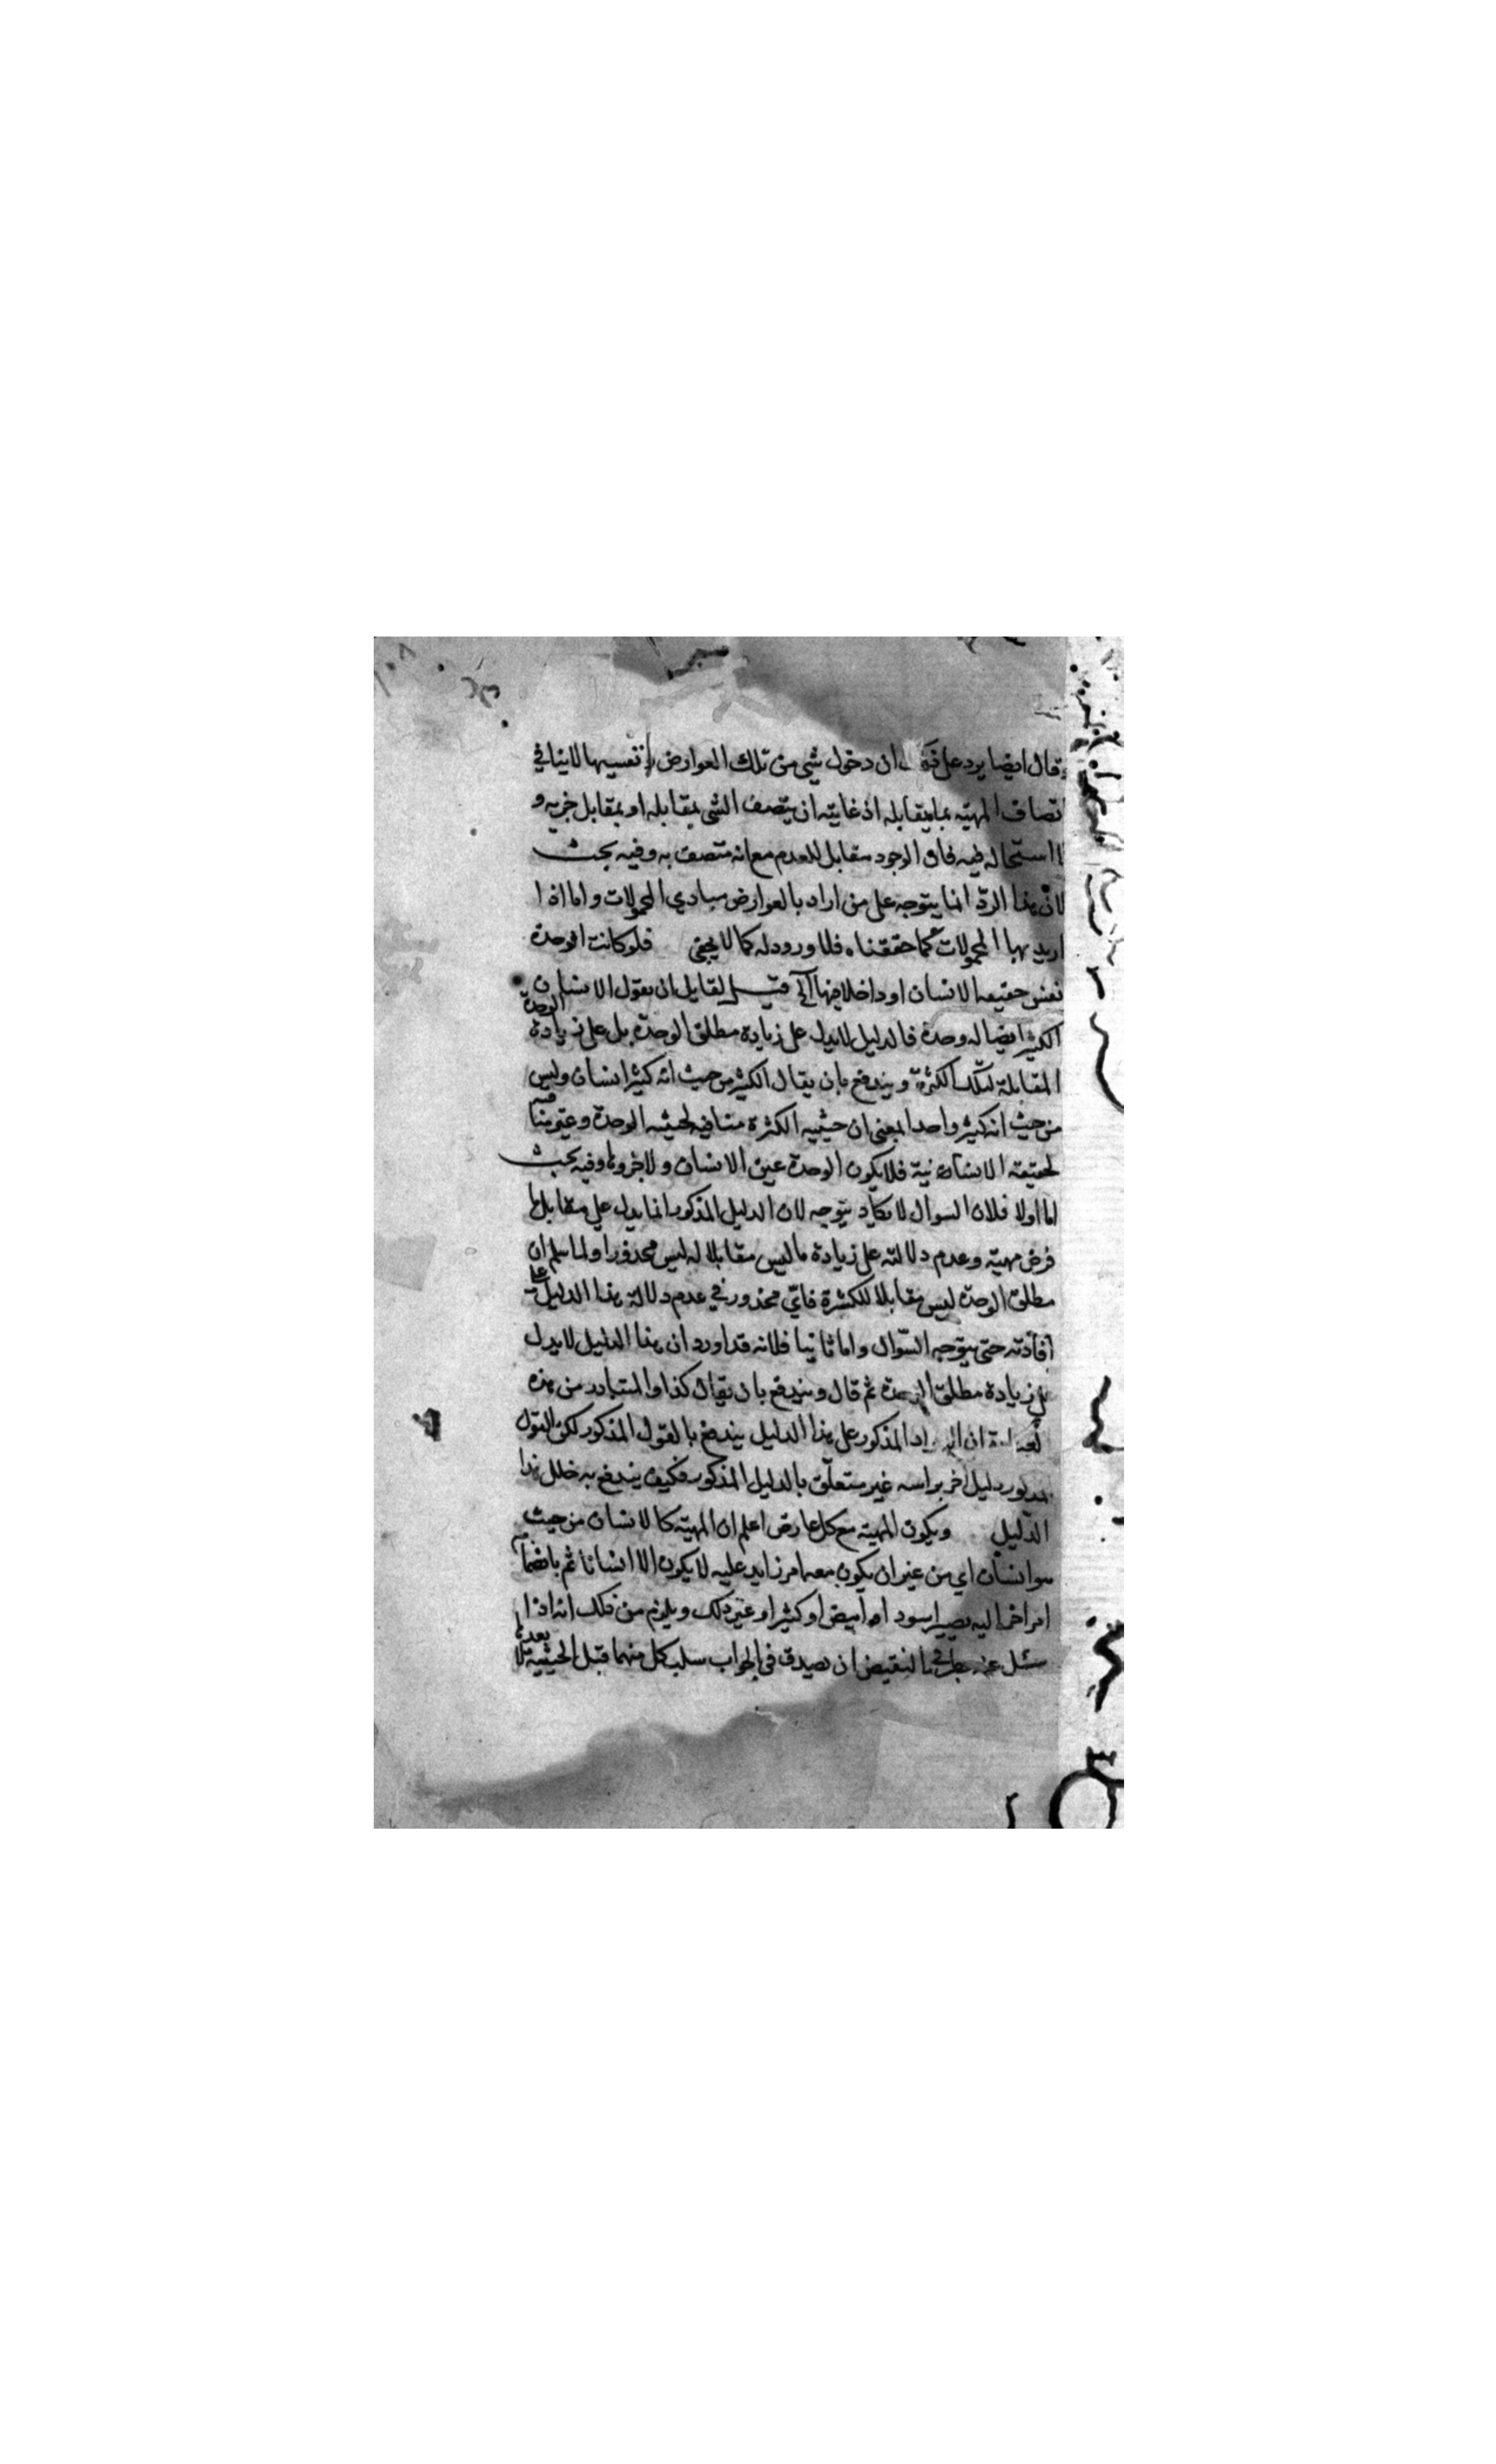 وقال ايضا يرد على ان دخول شي من تلك العوارض في نفسها لا ينافي
اتصاف المهية بما يقابله اذ غايته ان يتصف الشي بمقابله او بمقابل جزيه و
لا استحالة فيه فان الوجود مقابل للعدم مع انه متصف به وفيه بحث
لان هذا الرد انما يتوجه على من اراد بالعوارض مبادي المحمولات واما اذا
اريد بها المحمولات كما حققناه فلا ورود له كما لا يخفى فلو كانت الوحدة
نفس حقيقه الانسان او داخلا فيها الخ قيل لقايل ان يقول الانسان
الكثير ايضا له وحدة فالدليل لا يدل على زيادة مطلق الوحدة بل على زيادة الوحدة
المقابلة لتلك الكثرة ويندفع بان يقال الكثير من حيث انه كثير انسان وليس
من حيث انه كثير واحدا بمعنى ان حيثيه الكثرة منافيه لحيثيه الوحدة وغير منافيه
لحقيقه الانسانية فلا يكون الوحدة عين الانسان ولا جزوها وفيه بحث
اما اولا فلان السوال لا يكاد يتوجه لان الدليل المذكور انما يدل على مقابل ما
فرض مهية وعدم دلالته على زيادة ما ليس مقابلا له ليس محذورا ولما سلم ان
مطلق الوحدة ليس مقابلا للكثرة فاي محذور في عدم دلالة هذا الدليل على
افادته حتى يتوجه السوال واما ثانيا فلانه قد اورد ان هذا الدليل لا يدل
على زيادة مطلق الوحدة ثم قال ويندفع بان يقال كذا والمتبادر من هذه
العبارة ان الايراد المذكور على هذا الدليل يندفع بالقول المذكور لكن القول
المذكور دليل اخر براسه غير متعلق بالدليل المذكور فكيف يندفع به خلل هذا
الدليل ويكون المهية مع كل عارض اعلم ان المهية كالانسان من حيث
هو انسان اي من غير ان يكون معه امر زايد عليه لا يكون الا انسانا ثم بانضمام
امر اخر اليه يصير اسود او ابيض او كثيرا او غير ذلك ويلزم من ذلك انه اذا
سئل عنه بطرفي النقيض ان يصدق في الجواب سلب كل منهما قبل الحيثية لا بعدها